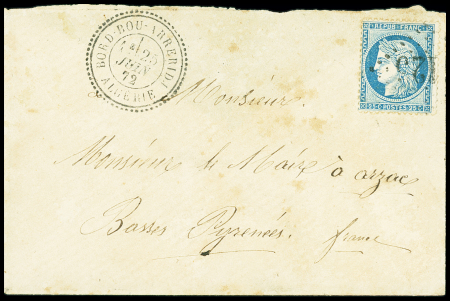 BORD-BOU-ARRERIDJ
25
JUIN
72
ALGERIE
REPUB. FRANC.
25 C. POSTES 25 C.
Monsieur
Monsieur le Maire à arzac
Basses Pyrénées. france